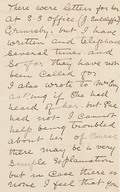 There were letters for her
at 33 office
Ormsby, but I have
written and telephoned
several times and
so far they have not
been called for
I also wrote to
asking if she had
heard of her, but she
had not. I cannot
help being troubled
about her of course
there may be a very
simple explanation
but in case there is
none I feel that